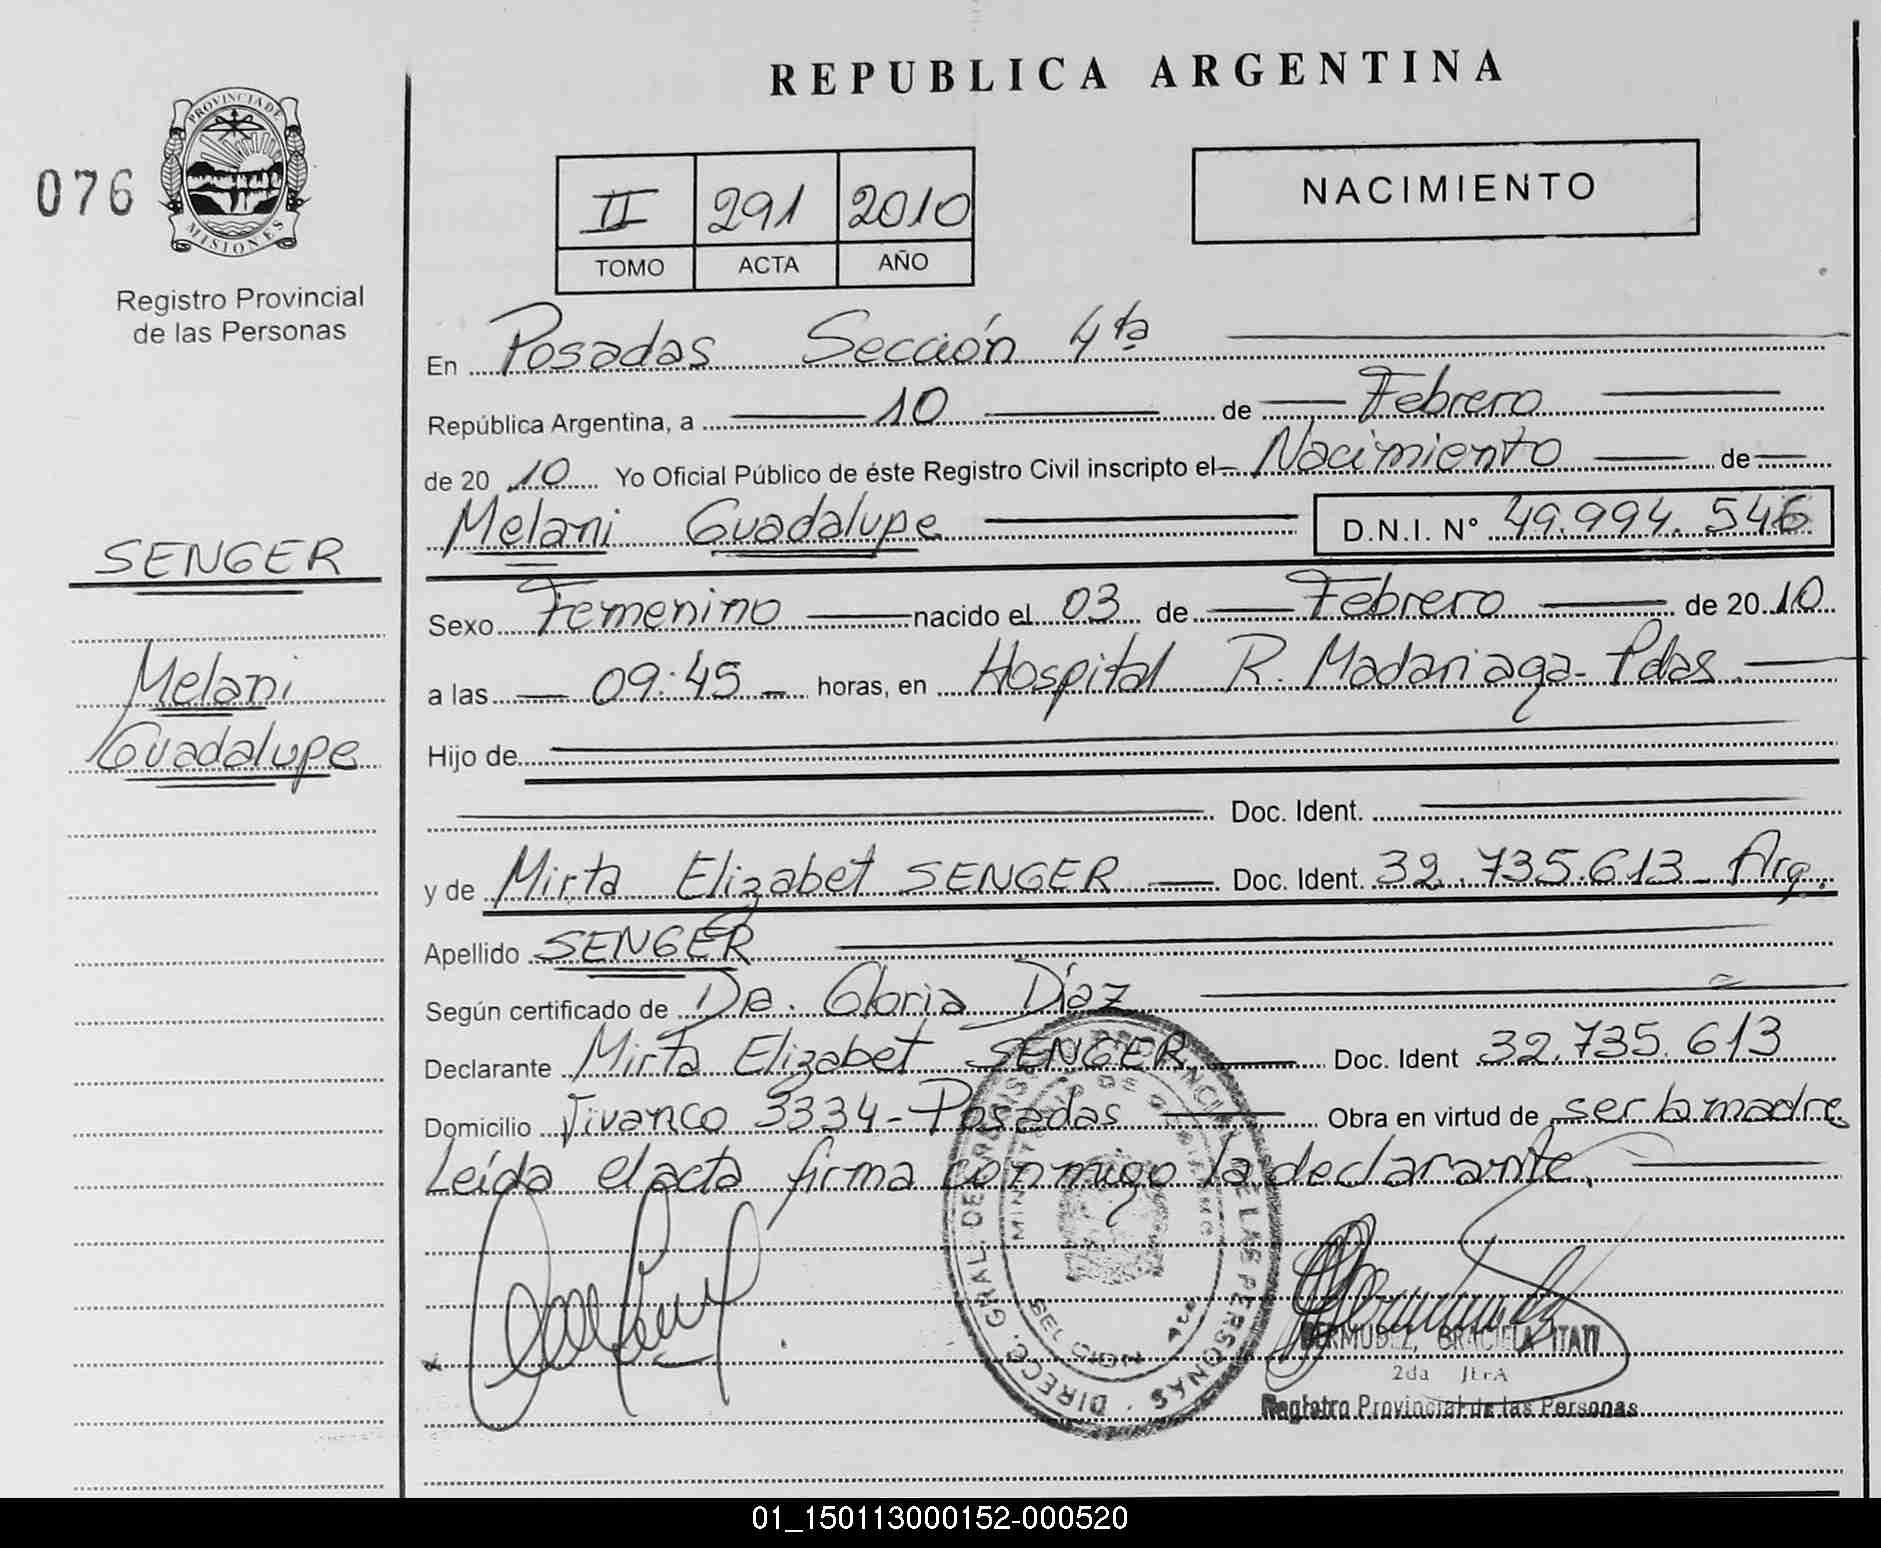 REPUBLICA ARGENTINA
076
PROVINCIA DE
MISIONES
Registro Provincial
de las Personas
II 291 2010
TOMO ACTA AÑO
NACIMIENTO
SENGER
Melani
Guadalupe
En Posadas Sección 4ta
República Argentina, a 10 de Febrero
de 20 10 Yo Oficial Público de éste Registro Civil inscripto el Nacimiento de
Melani Guadalupe D.N.I. Nº 49.994.546
Sexo Femenino nacido el 03 de Febrero de 20 10
a las 09:45 horas, en Hospital R. Madariaga- Pdas.
Hijo de
Doc. Ident.
y de Mirta Elizabet SENGER Doc. Ident. 32.735.613 Arg.
Apellido SENGER
Según certificado de Da. Gloria Díaz
Declarante Mirta Elizabet SENGER Doc. Ident 32.735.613
Domicilio Vivanco 3334-Posadas Obra en virtud de ser la madre
Leída el acta firma conmigo la declarante.
BERMUDEZ, GRACIELA ITATI
2da JEFA
Registro Provincial de las Personas
01_150113000152-000520